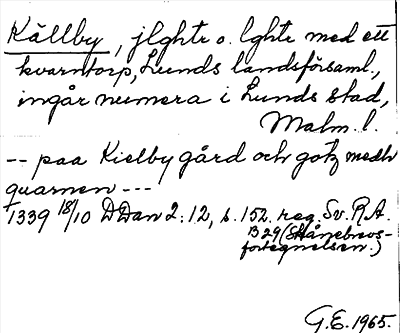 Källby, jlghtr o. lght med ett
kvarntorp, Lunds landsförsaml.,
ingår numera i Lunds stad,
Malm. l.
-- paa Kielby gård och gotz medh
quarnen ---
1339 18/10 DDan 2:12, s. 152. reg. Sv. R.A.
B 29 (Skånebrevs-
fortegnelsen.)
G.E. 1965.